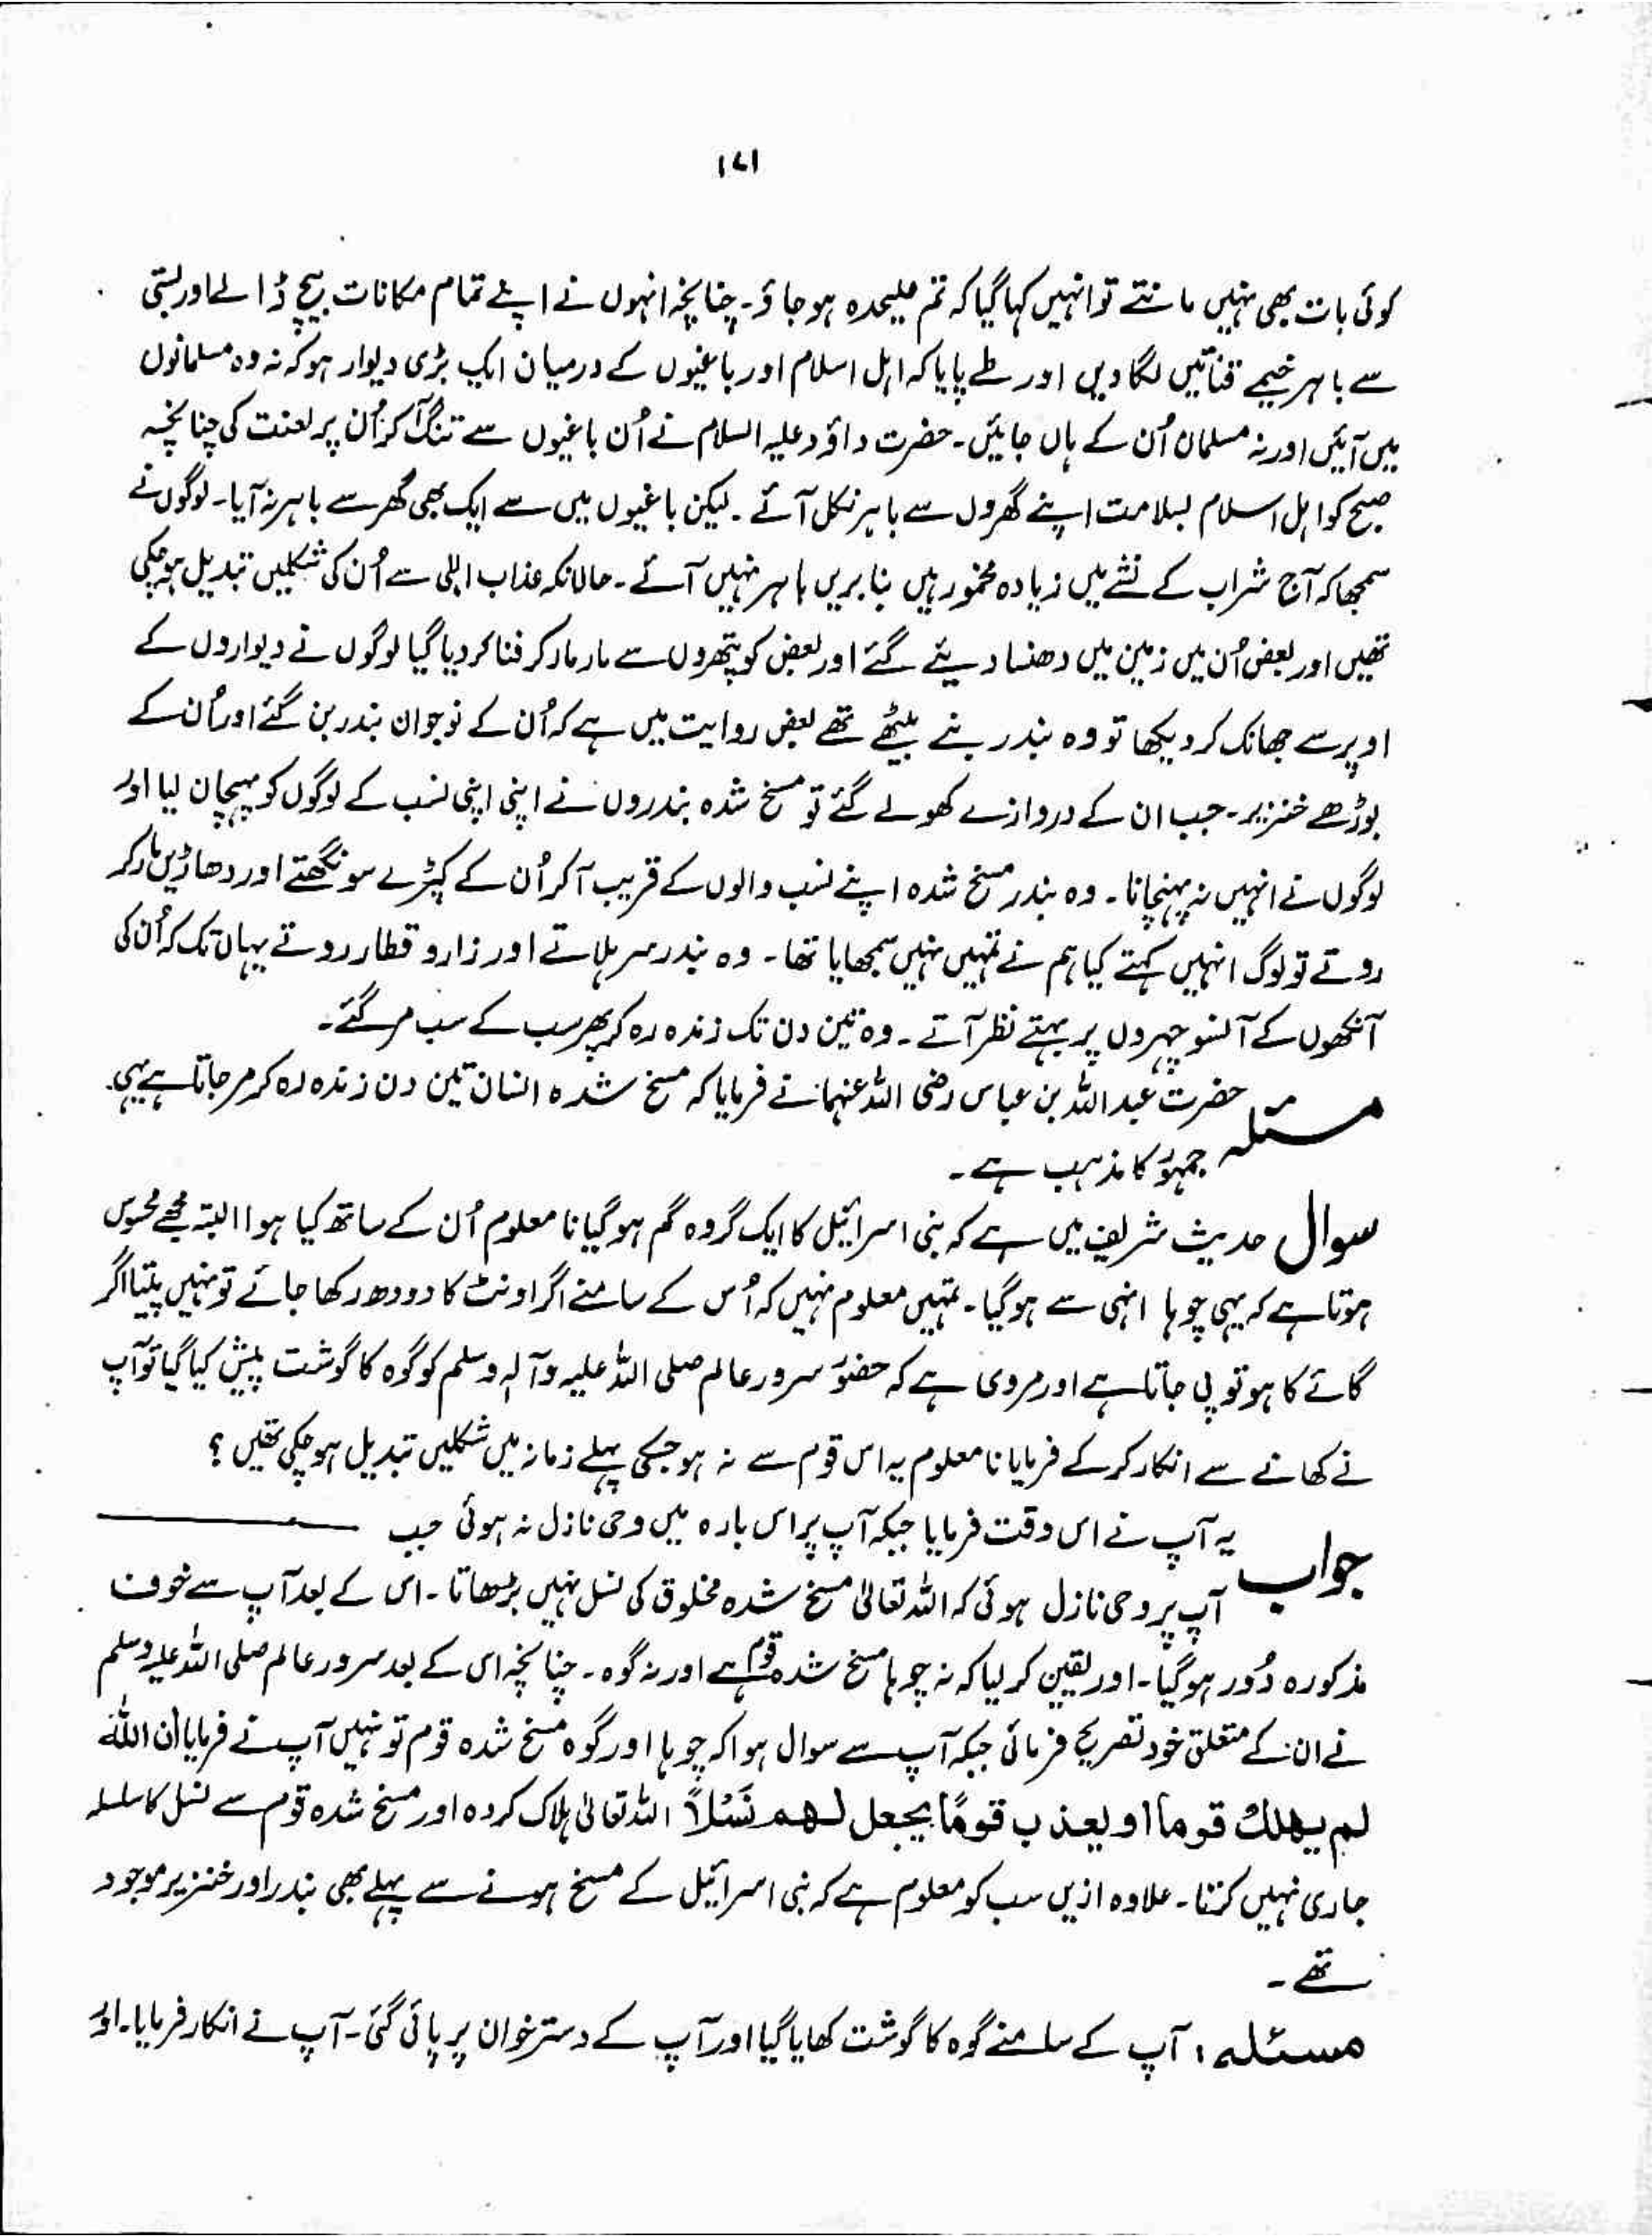 ۱۷۱
کوئی بات بھی نہیں مانتے تو انہیں کہا گیا کہ تم علیحدہ ہو جاؤ۔ چنانچہ انہوں نے اپنے تمام مکانات بیچ ڈالے اور بستی
سے باہر خیمے قناتیں لگا دیں اور طے پایا کہ اہل اسلام اور باغیوں کے درمیان ایک بڑی دیوار ہو کہ نہ وہ مسلمانوں
میں آئیں اور نہ مسلمان اُن کے ہاں جائیں۔ حضرت داؤد علیہ السلام نے اُن باغیوں سے تنگ آ کر اُن پر لعنت کی چنانچہ
صبح کو اہل اسلام بسلامت اپنے گھروں سے باہر نکل آئے۔ لیکن باغیوں میں سے ایک بھی گھر سے باہر نہ آیا۔ لوگوں نے
سمجھا کہ آج شراب کے نشے میں زیادہ مخمور ہیں بنا بریں باہر نہیں آئے۔ حالانکہ عذاب الہٰی سے اُن کی شکلیں تبدیل ہو چکی
تھیں اور بعض اُن میں زمین میں دھنسا دیئے گئے اور بعض کو پتھروں سے مار مار کر فنا کر دیا گیا لوگوں نے دیواروں کے
اوپر سے جھانک کر دیکھا تو وہ بندر بنے بیٹھے تھے بعض روایت میں ہے کہ اُن کے نوجوان بندر بن گئے اور اُن کے
بوڑھے خنزیر۔ جب ان کے دروازے کھولے گئے تو مسخ شدہ بندروں نے اپنی اپنی نسب کے لوگوں کو پہچان لیا اور
لوگوں نے انہیں نہ پہنچانا۔ وہ بندر مسخ شدہ اپنے نسب والوں کے قریب آ کر اُن کے کپڑے سونگھتے اور دھاڑیں مار کر
روتے تو لوگ انہیں کہتے کیا ہم نے تمہیں نہیں سمجھایا تھا۔ وہ بندر سر ہلاتے اور زار و قطار روتے یہاں تک کہ اُن کی
آنکھوں کے آنسو چہروں پر بہتے نظر آتے۔ وہ تین دن تک زندہ رہ کر پھر سب کے سب مر گئے۔
مسئلہ حضرت عبداللہ بن عباس رضی اللہ عنہما نے فرمایا کہ مسخ شدہ انسان تین دن زندہ رہ کر مر جاتا ہے یہی
جمہور کا مذہب ہے۔
سوال حدیث شریف میں ہے کہ بنی اسرائیل کا ایک گروہ گم ہو گیا نا معلوم اُن کے ساتھ کیا ہوا البتہ مجھے محسوس
ہوتا ہے کہ یہی چوہا انہی سے ہو گیا۔ تمہیں معلوم نہیں کہ اُس کے سامنے اگر اونٹ کا دودھ رکھا جائے تو نہیں پیتا اگر
گائے کا ہو تو پی جاتا ہے اور مروی ہے کہ حضور سرور عالم صلی اللہ علیہ وآلہ وسلم کو گوہ کا گوشت پیش کیا گیا تو آپ
نے کھانے سے انکار کر کے فرمایا نا معلوم یہ اس قوم سے نہ ہو جسکی پہلے زمانہ میں شکلیں تبدیل ہو چکی تھیں ؟
جواب یہ آپ نے اس وقت فرمایا جبکہ آپ پر اس بارہ میں وحی نازل نہ ہوئی جب
آپ پر وحی نازل ہوئی کہ اللہ تعالیٰ مسخ شدہ مخلوق کی نسل نہیں بڑھاتا۔ اس کے بعد آپ سے خوف
مذکورہ دُور ہو گیا۔ اور یقین کر لیا کہ نہ چوہا مسخ شدہ قوم ہے اور نہ گوہ۔ چنانچہ اس کے بعد سرور عالم صلی اللہ علیہ وسلم
نے ان کے متعلق خود تصریح فرمائی جبکہ آپ سے سوال ہوا کہ چوہا اور گوہ مسخ شدہ قوم تو نہیں آپ نے فرمایا ان اللہ
لم یھلک قوما او یعذب قومًا یجعل لھم نَسْلاً اللہ تعالیٰ ہلاک کردہ اور مسخ شدہ قوم سے نسل کا سلسلہ
جاری نہیں کرتا۔ علاوہ ازیں سب کو معلوم ہے کہ بنی اسرائیل کے مسخ ہونے سے پہلے بھی بندر اور خنزیر موجود
تھے۔
مسئلہ: آپ کے سامنے گوہ کا گوشت کھایا گیا اور آپ کے دستر خوان پر پائی گئی۔ آپ نے انکار فرمایا۔ اور